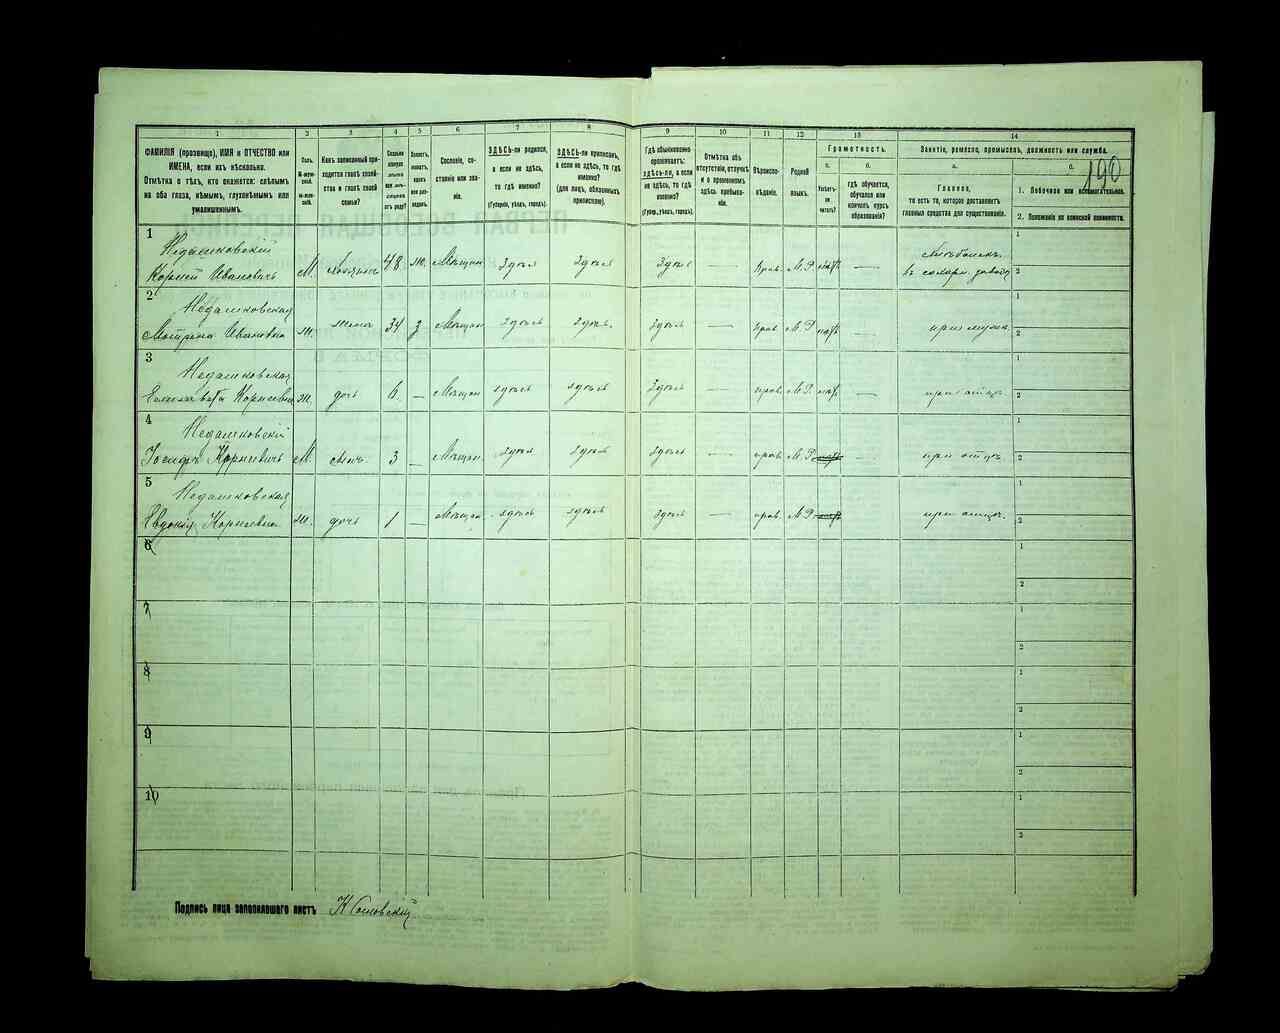 190
1 2 3 4 5 6 7 8 9 10 11 12 13 14
ФАМИЛІЯ (прозвище), ИМЯ и ОТЧЕСТВО или
ИМЕНА, если ихъ нѣсколько.
Отмѣтка о тѣхъ, кто окажется: слѣпымъ
на оба глаза, нѣмымъ, глухонѣмымъ или
умалишеннымъ.
Полъ.
М-муж-
ской.
Ж-жен-
скій.
Какъ записанный при-
ходится главѣ хозяй-
ства и главѣ своей
семьи?
Сколько
минуло
лѣтъ
Холостъ,
женатъ,
вдовъ
или раз-
веденъ.
Сословіе, со-
стояніе или зва-
ніе.
ЗДѢСЬ-ли родился,
а если не здѣсь,
то гдѣ именно?
(Губернія, уѣздъ, городъ).
ЗДѢСЬ-ли приписанъ,
а если не здѣсь, то гдѣ
именно?
(для лицъ, обязанныхъ
припискою).
Гдѣ обыкновенно
проживаетъ:
здѣсь-ли, а если
не здѣсь, то гдѣ
именно?
(Губерн., уѣздъ, городъ).
Отмѣтка объ
отсутствіи, отлучкѣ
и о временномъ
здѣсь пребыва-
ніи.
Вѣроиспо-
вѣданіе.
Родной
языкъ.
Грамотность.
а.
Умѣетъ-
ли
читать?
б.
гдѣ обучается,
обучался или
кончилъ курсъ
образованія?
Занятіе, ремесло, промыселъ, должность или служба.
а.
Главное,
то есть то, которое доставляетъ
главныя средства для существованія.
б.
1. Побочное или вспомогательное.
2. Положеніе по воинской повинности.
1
Недашковскій
Корней Ивановичъ М. хозяинъ 48 ж. Мѣщан здѣсь здѣсь здѣсь Прав. М.Р. —
въ сахарн. заводѣ
2
Недашковская
Матрена Ивановна ж. жена 34 з Мѣщан здѣсь здѣсь здѣсь — Прав. М.Р. — при мужѣ
3
Недашковская
Елизавета Корнеевна ж. дочь 6 — Мѣщан здѣсь здѣсь здѣсь — прав. М.Р. — при отцѣ
4
Недашковскій
Іосифъ Корнеевичъ М. сынъ 3 — Мѣщан. здѣсь здѣсь здѣсь — прав. М.Р. — при отцѣ
5
Недашковская
Евдокія Корнеевна ж. дочь 1 — Мѣщан здѣсь здѣсь здѣсь — прав. М.Р. — при отцѣ.
6
7
8
9
10
Подпись лица заполнившаго листъ К Сосновскій